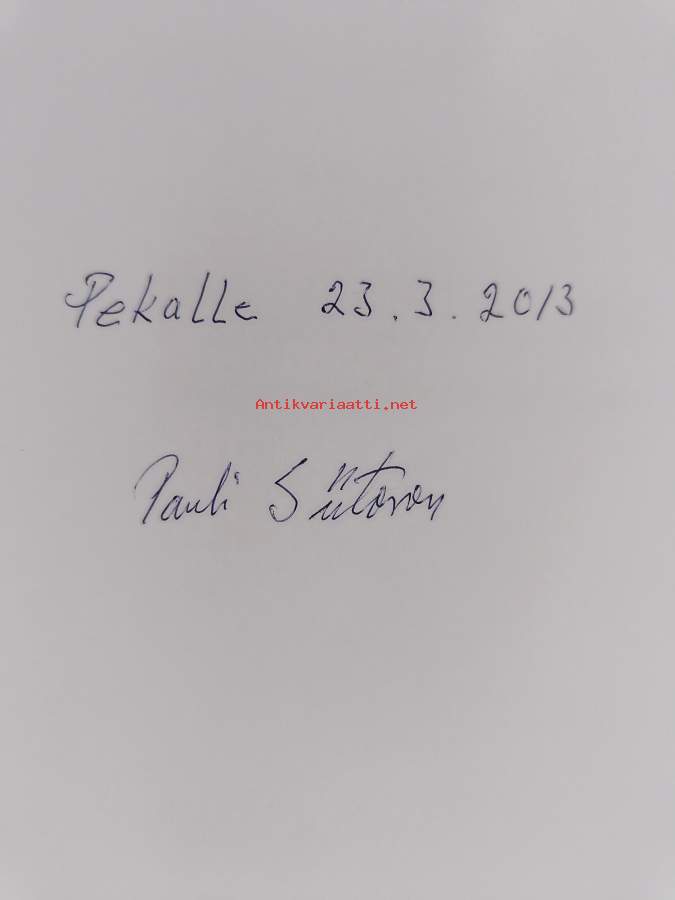 Pekalle 23.3.2013
Antikvariaatti.net
Pauli Siitonen